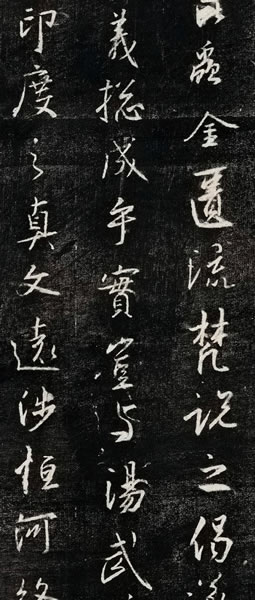 蟲金匱流梵說之偈
義揔成乎實豈与湯武
印度之真文遠涉恒河終